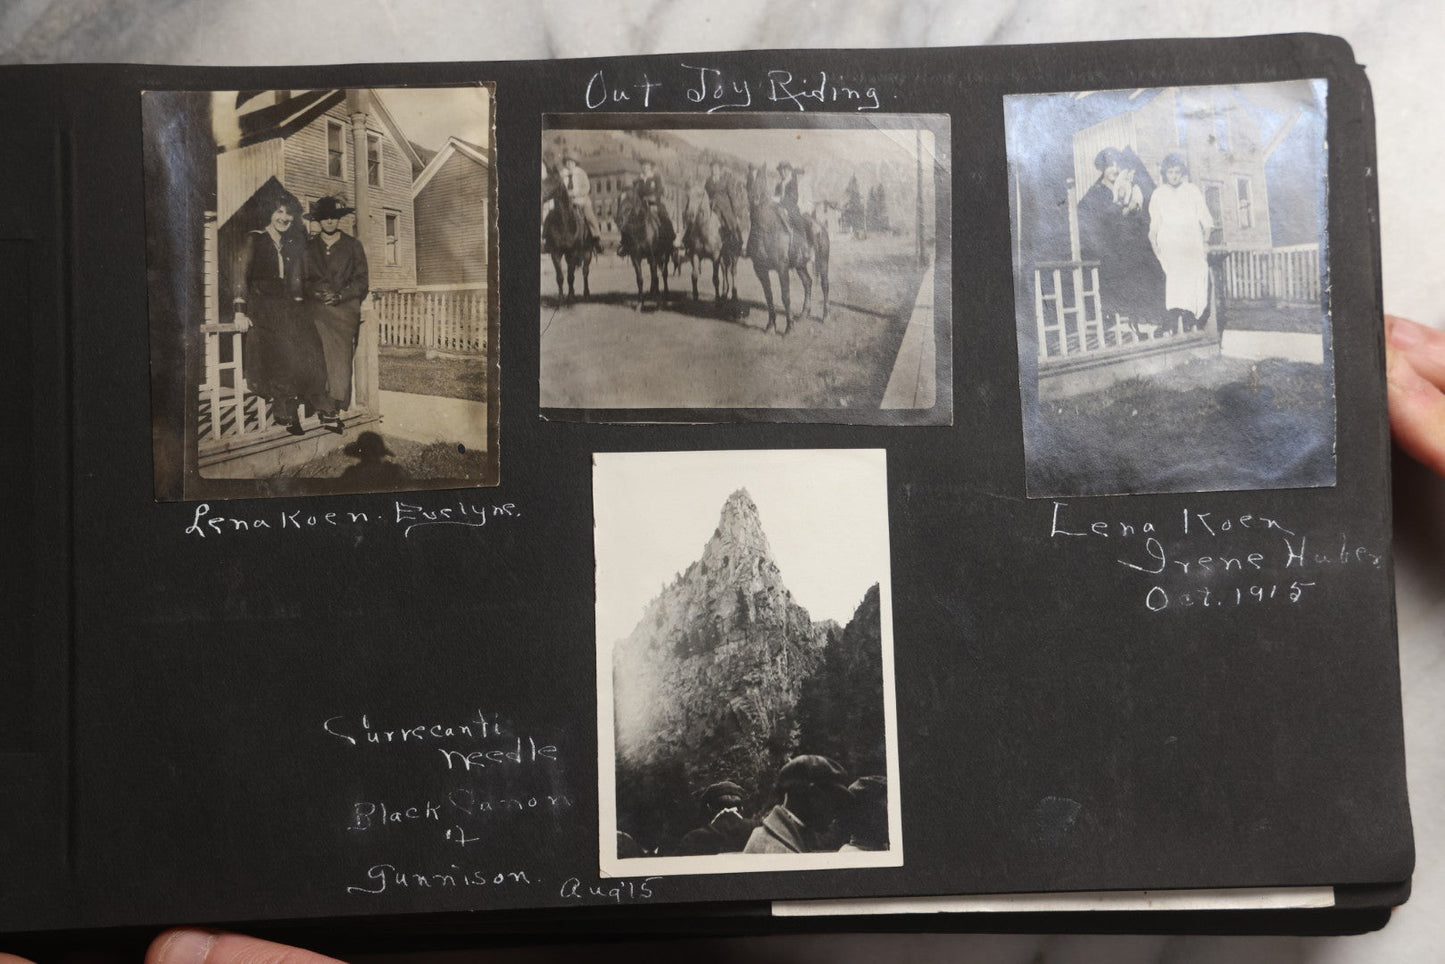 Out Joy Riding.
Lena Koen. Evelyne.
Lena Koen
Irene Huber
Oct. 1915
Currecanti
Needle
Black Canon
of
Gunnison. Aug '15